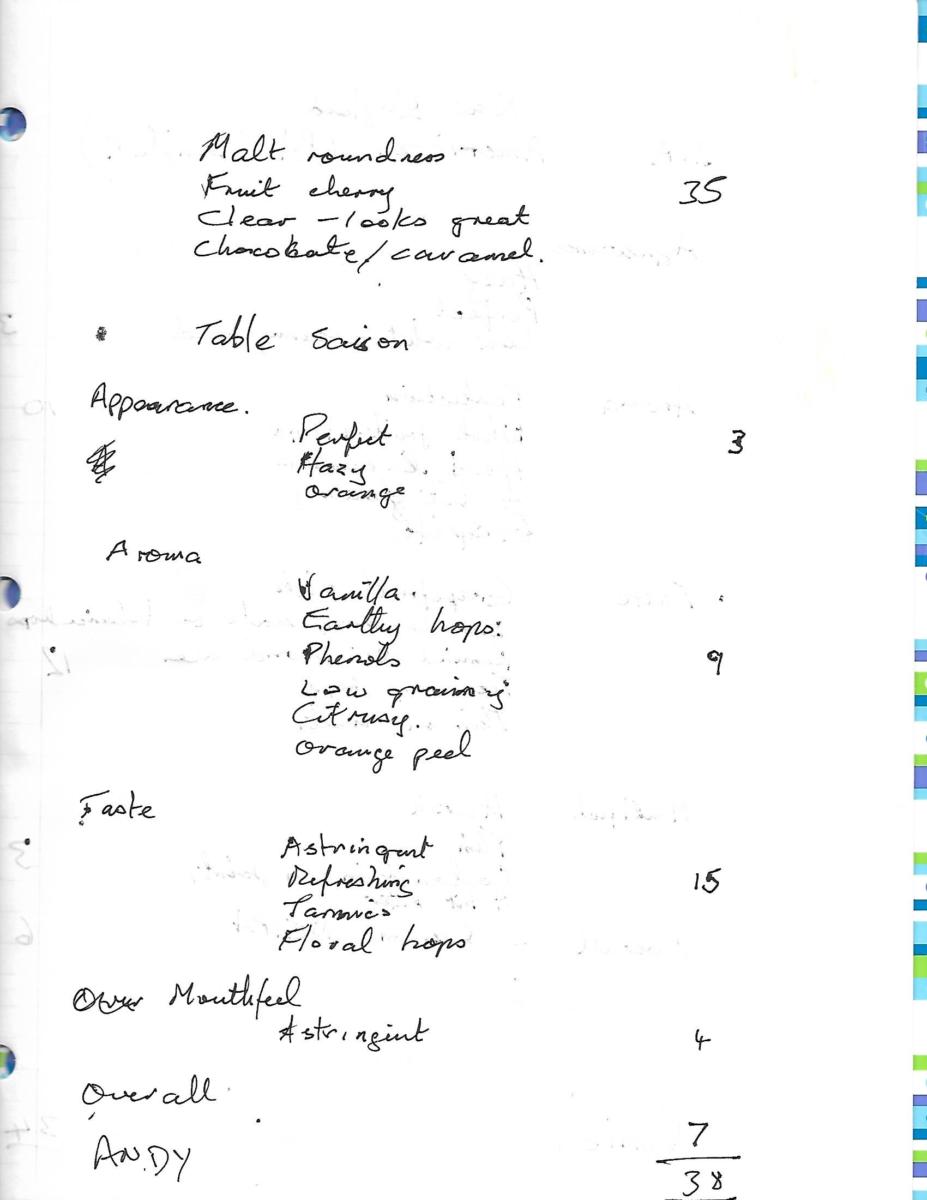 Malt roundness
Fruit cherry 35
Clear - looks great
Chocobate/caramel.
Table Saison
Appearance.
Perfect 3
Hazy
Orange
Aroma
Vanilla.
Earthy hops.
Phenols 9
Low grainy
Citrusy.
Orange peel
Taste
Astringent
Refreshing 15
Tannics
Floral hops
Mouthfeel
Astringint 4
Overall
7
ANDY
38